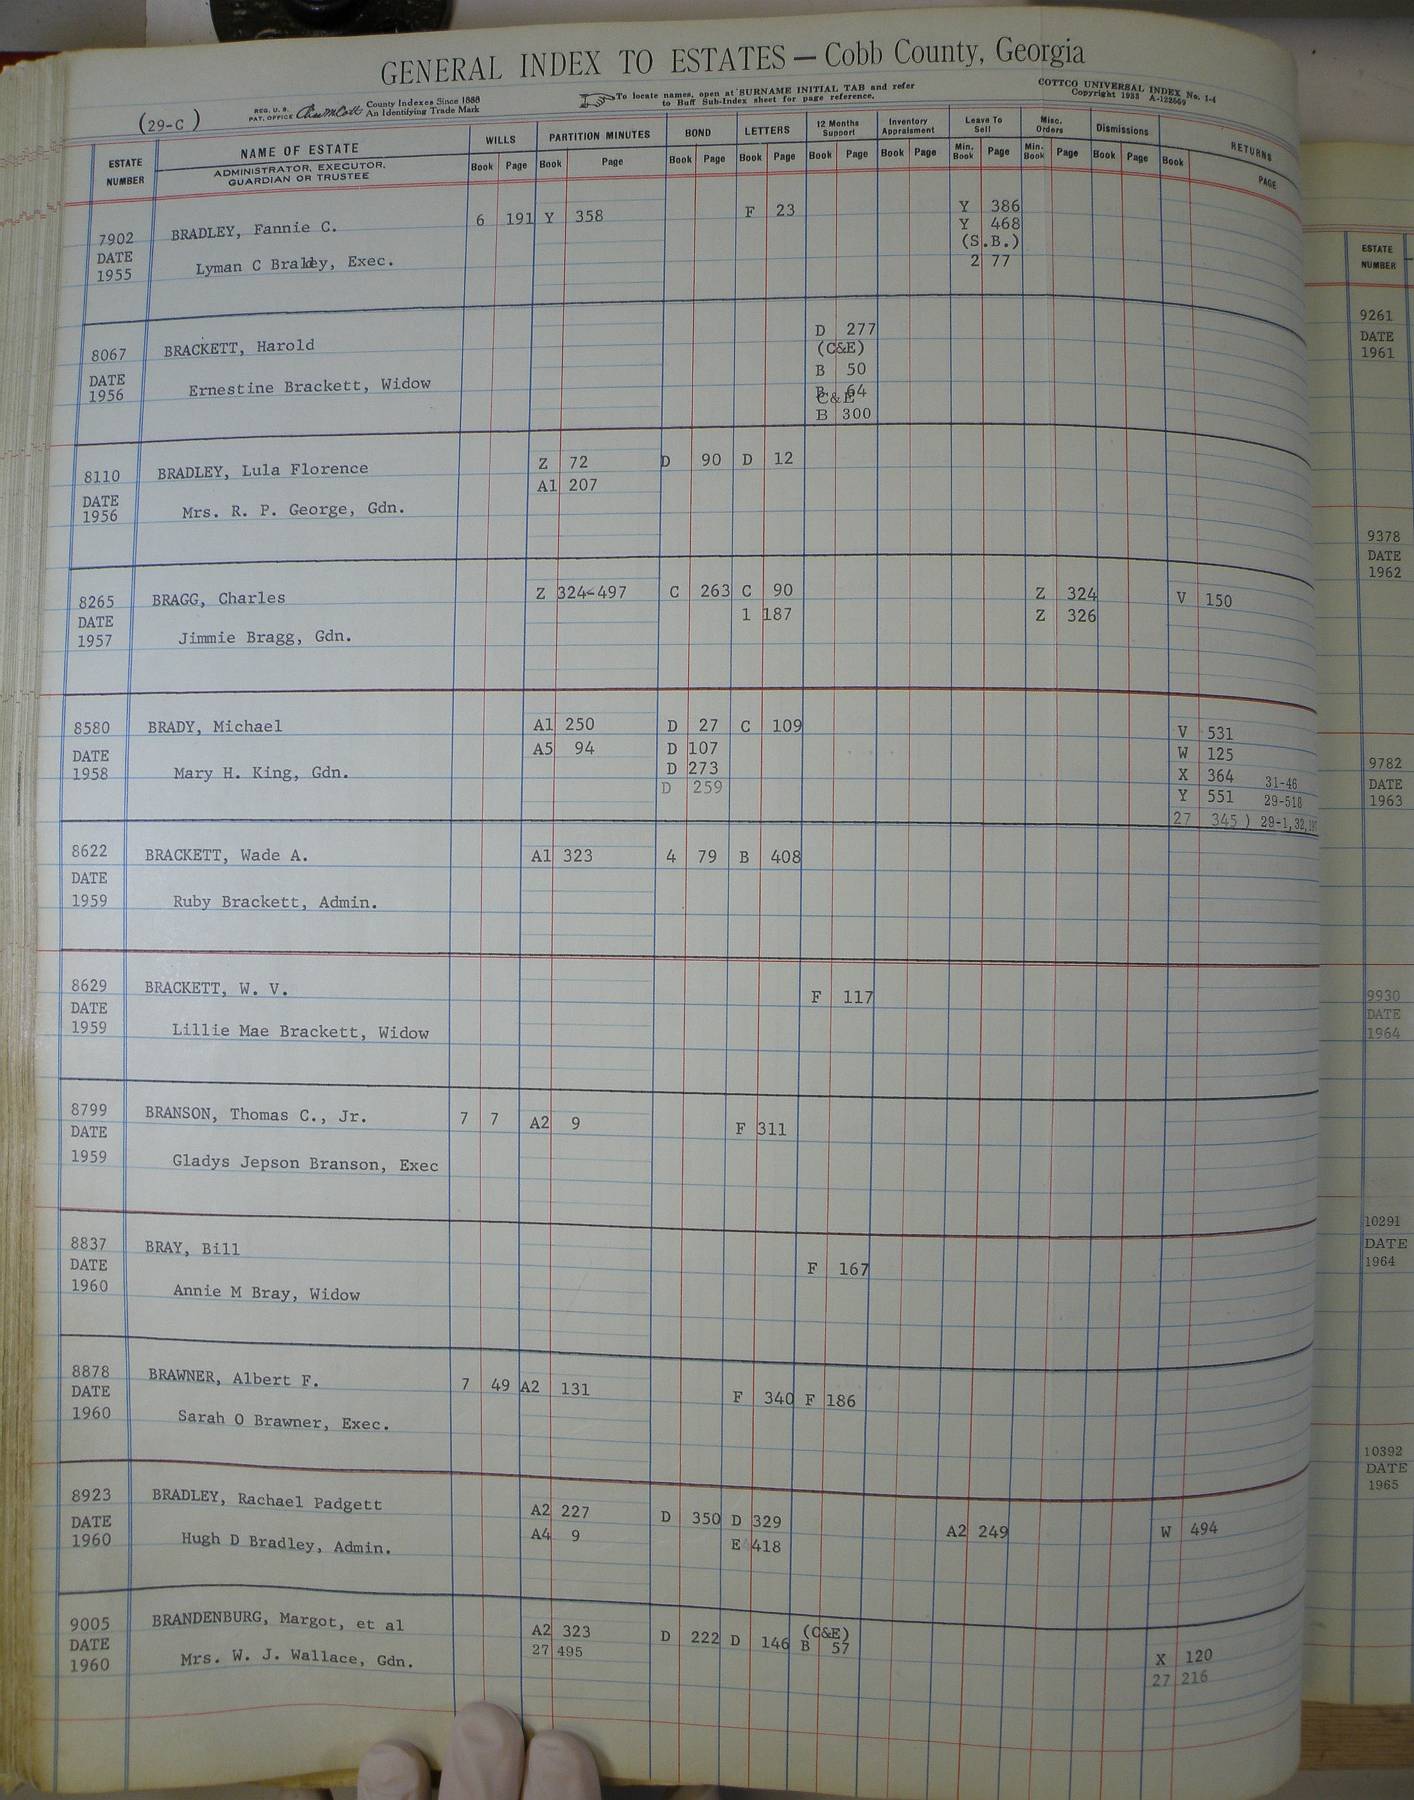 GENERAL INDEX TO ESTATES — Cobb County, Georgia
(29-C)
REG. U. S. PAT. OFFICE County Indexes Since 1888 An Identifying Trade Mark
To locate names, open at SURNAME INITIAL TAB and refer to Buff Sub-Index sheet for page reference.
COTTCO UNIVERSAL INDEX No. 1-4
Copyright 1933 A-122569
ESTATE NUMBER NAME OF ESTATE WILLS PARTITION MINUTES BOND LETTERS 12 Months Support Inventory Appraisment Leave To Sell Misc. Orders Dismissions RETURNS
ADMINISTRATOR, EXECUTOR, GUARDIAN OR TRUSTEE Book Page Book Page Book Page Book Page Book Page Book Page Min. Book Page Min. Book Page Book Page Book PAGE
7902 BRADLEY, Fannie C. 6 191 Y 358 F 23 Y 386
DATE Y 468
1955 Lyman C Bradley, Exec. (S.B.)
2 77
8067 BRACKETT, Harold D 277
(C&E)
DATE B 50
1956 Ernestine Brackett, Widow B 64
C&E
B 300
8110 BRADLEY, Lula Florence Z 72 D 90 D 12
DATE A1 207
1956 Mrs. R. P. George, Gdn.
8265 BRAGG, Charles Z 324-497 C 263 C 90 Z 324 V 150
DATE 1 187 Z 326
1957 Jimmie Bragg, Gdn.
8580 BRADY, Michael A1 250 D 27 C 109 V 531
DATE A5 94 D 107 W 125
1958 Mary H. King, Gdn. D 273 X 364 31-46
D 259 Y 551 29-518
27 345 ) 29-1,32,
8622 BRACKETT, Wade A. A1 323 4 79 B 408
DATE
1959 Ruby Brackett, Admin.
8629 BRACKETT, W. V. F 117
DATE
1959 Lillie Mae Brackett, Widow
8799 BRANSON, Thomas C., Jr. 7 7 A2 9 F 311
DATE
1959 Gladys Jepson Branson, Exec
8837 BRAY, Bill F 167
DATE
1960 Annie M Bray, Widow
8878 BRAWNER, Albert F. 7 49 A2 131 F 340 F 186
DATE
1960 Sarah O Brawner, Exec.
8923 BRADLEY, Rachael Padgett A2 227 D 350 D 329 A2 249 W 494
DATE A4 9 E 418
1960 Hugh D Bradley, Admin.
9005 BRANDENBURG, Margot, et al A2 323 D 222 D 146 (C&E)
DATE 27 495 B 57 X 120
1960 Mrs. W. J. Wallace, Gdn. 27 216
ESTATE NUMBER
9261
DATE
1961
9378
DATE
1962
9782
DATE
1963
9930
DATE
1964
10291
DATE
1964
10392
DATE
1965